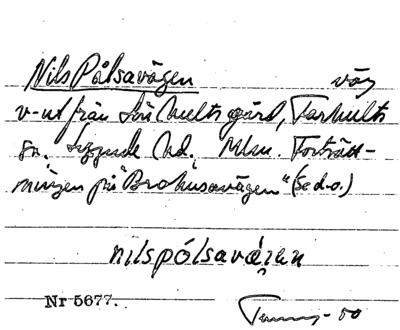 Nils Pålsavägen väg
v-ut från Sörhults gård, Farhults
sn. Luggude hd., Mlm. Forträtt-
ningen på "Brohusavägen" (se d.o.)
nilspólsavę́gen
Nr 5677.